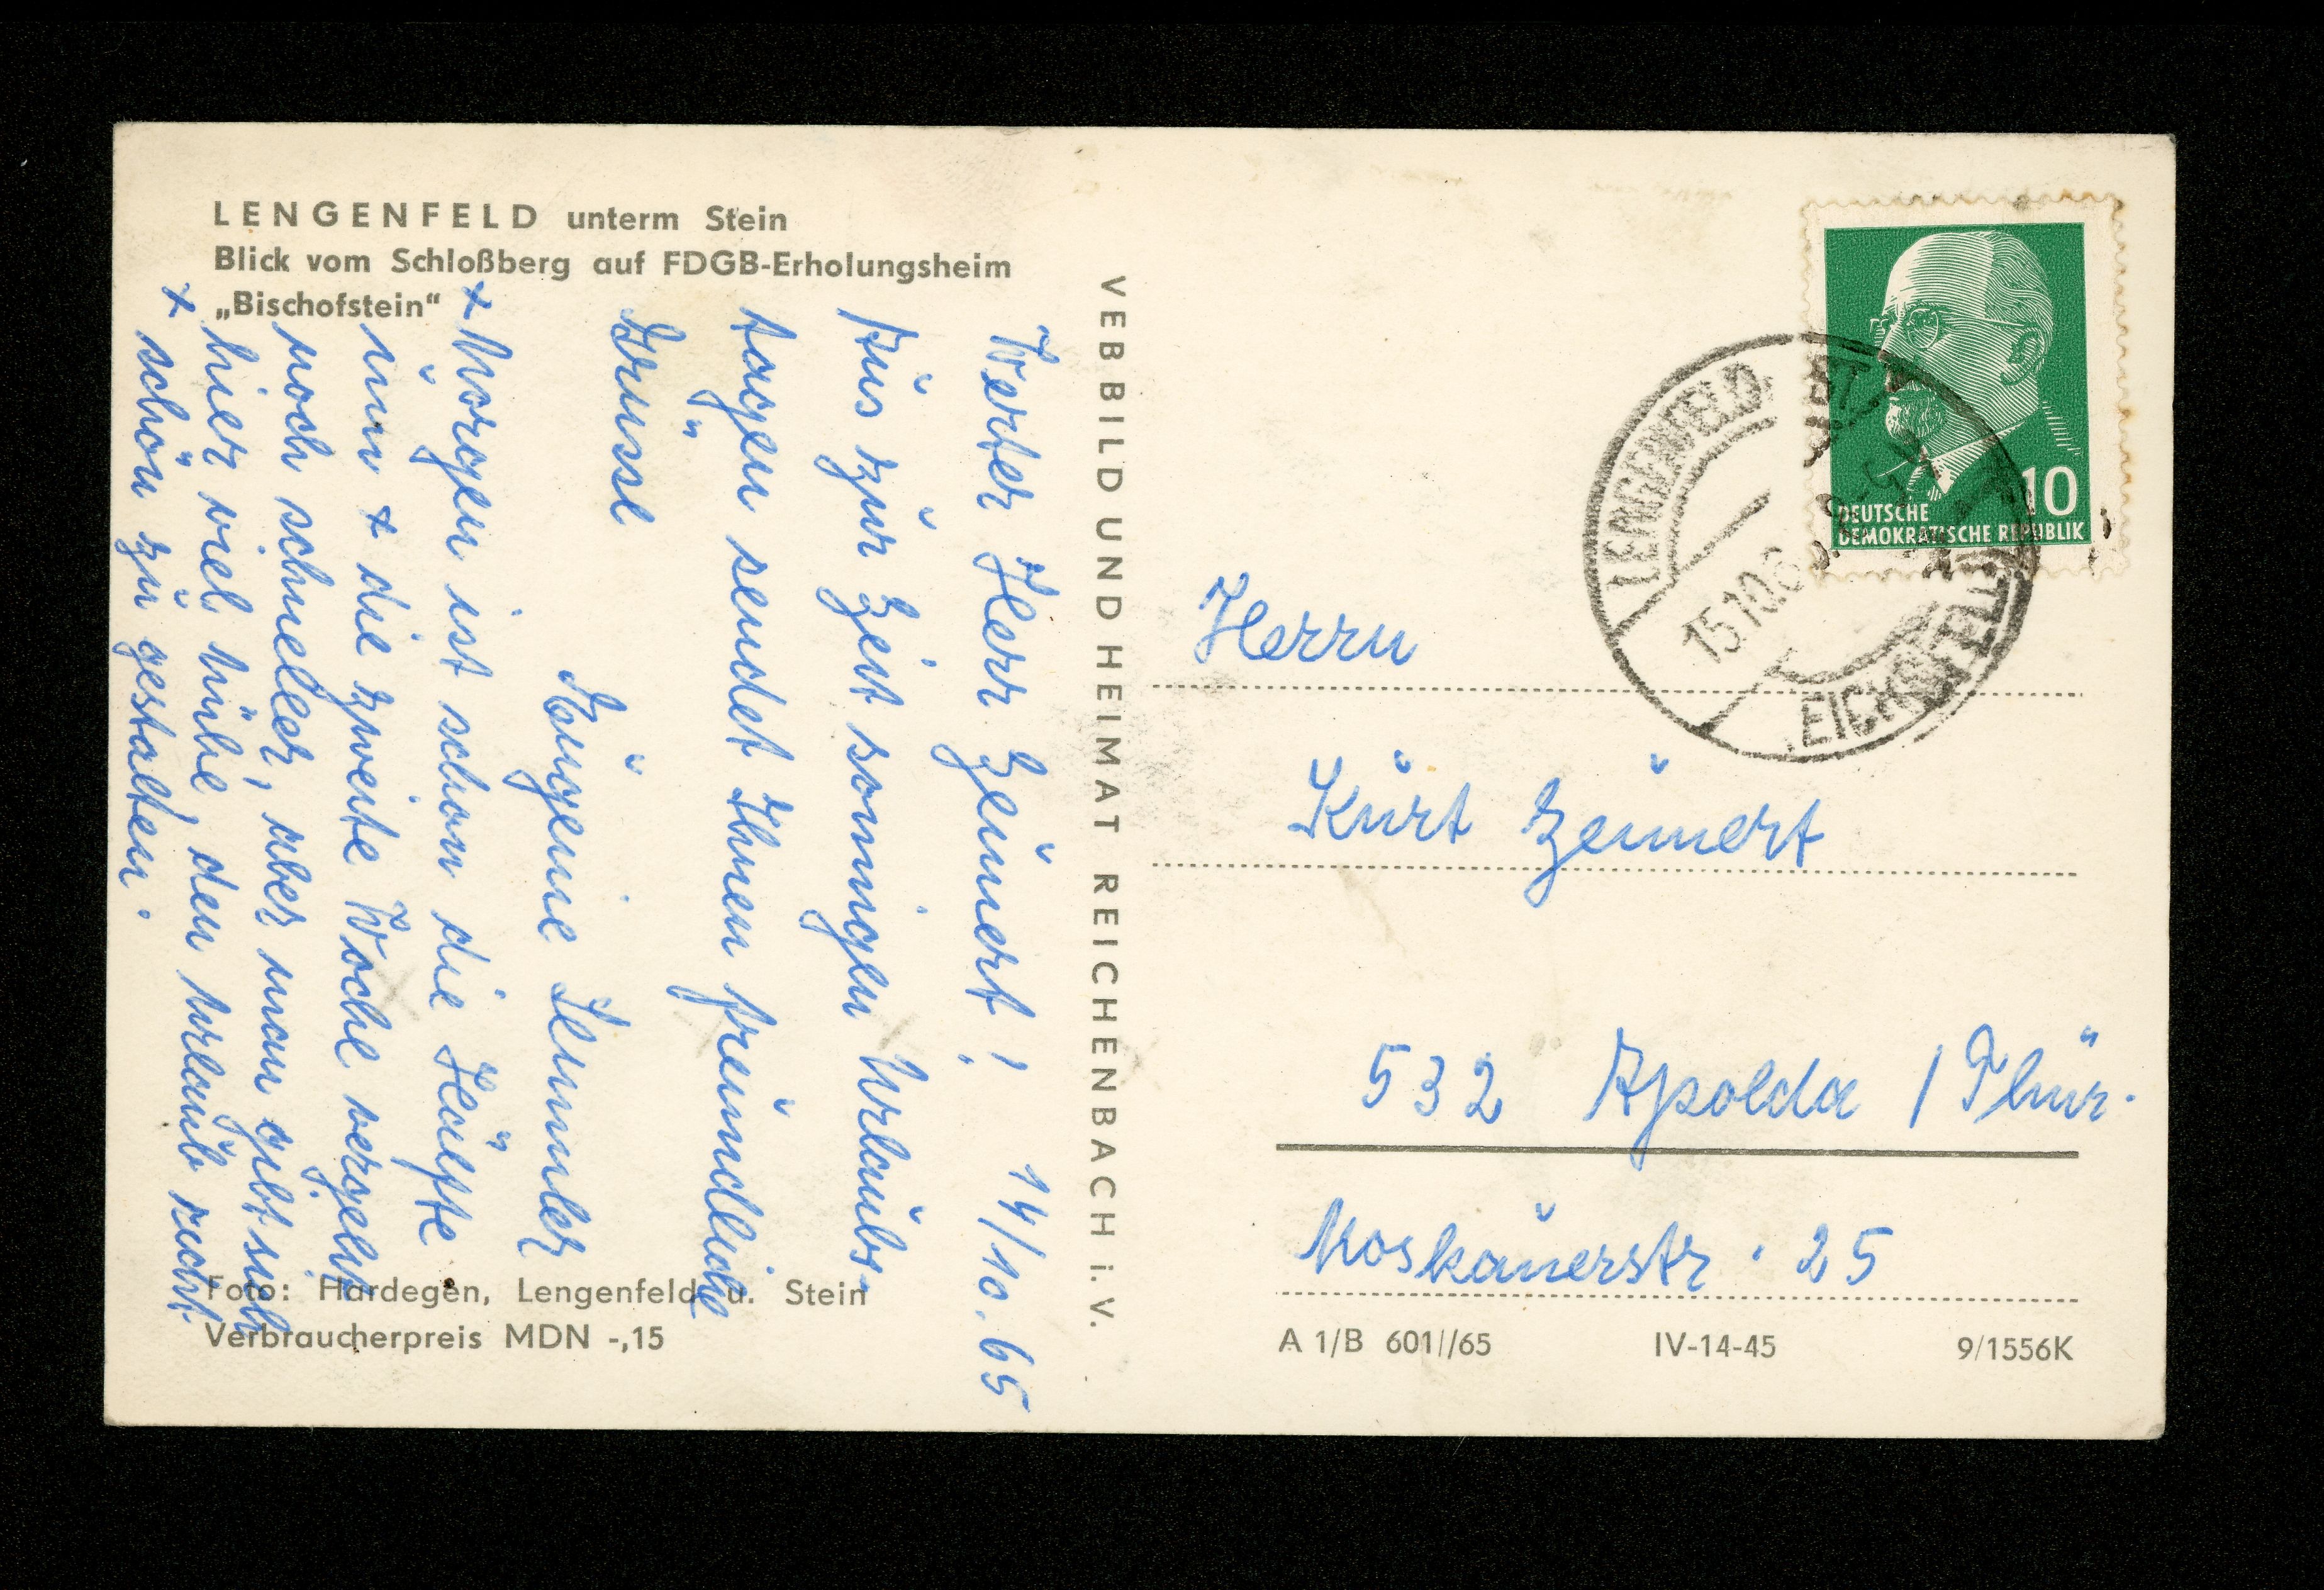 LENGENFELD unterm Stein
Blick vom Schloßberg auf FDGB-Erholungsheim
„Bischofstein“
Werter Herr Zeunert! 14/10.65
Aus zur Zeit sonnigen Urlaubs-
tagen sendet Ihnen freundliche
Grüsse
+ Morgen ist schon die Hälfte
um + die zweite Woche vergeht
noch schneller, aber man gibt sich
hier viel Mühe, den Urlaub recht
+ schön zu gestalten.
Foto: Hardegen, Lengenfeld u. Stein
Verbraucherpreis MDN -,15
VEB BILD UND HEIMAT REICHENBACH i. V.
10
DEUTSCHE
DEMOKRATISCHE REPUBLIK
LENGENFELD
15.10.6
EICHSFELD
Herrn
Kurt Zeunert
532 Apolda / Thür.
Moskauerstr. 25
A 1/B 601//65 IV-14-45 9/1556K